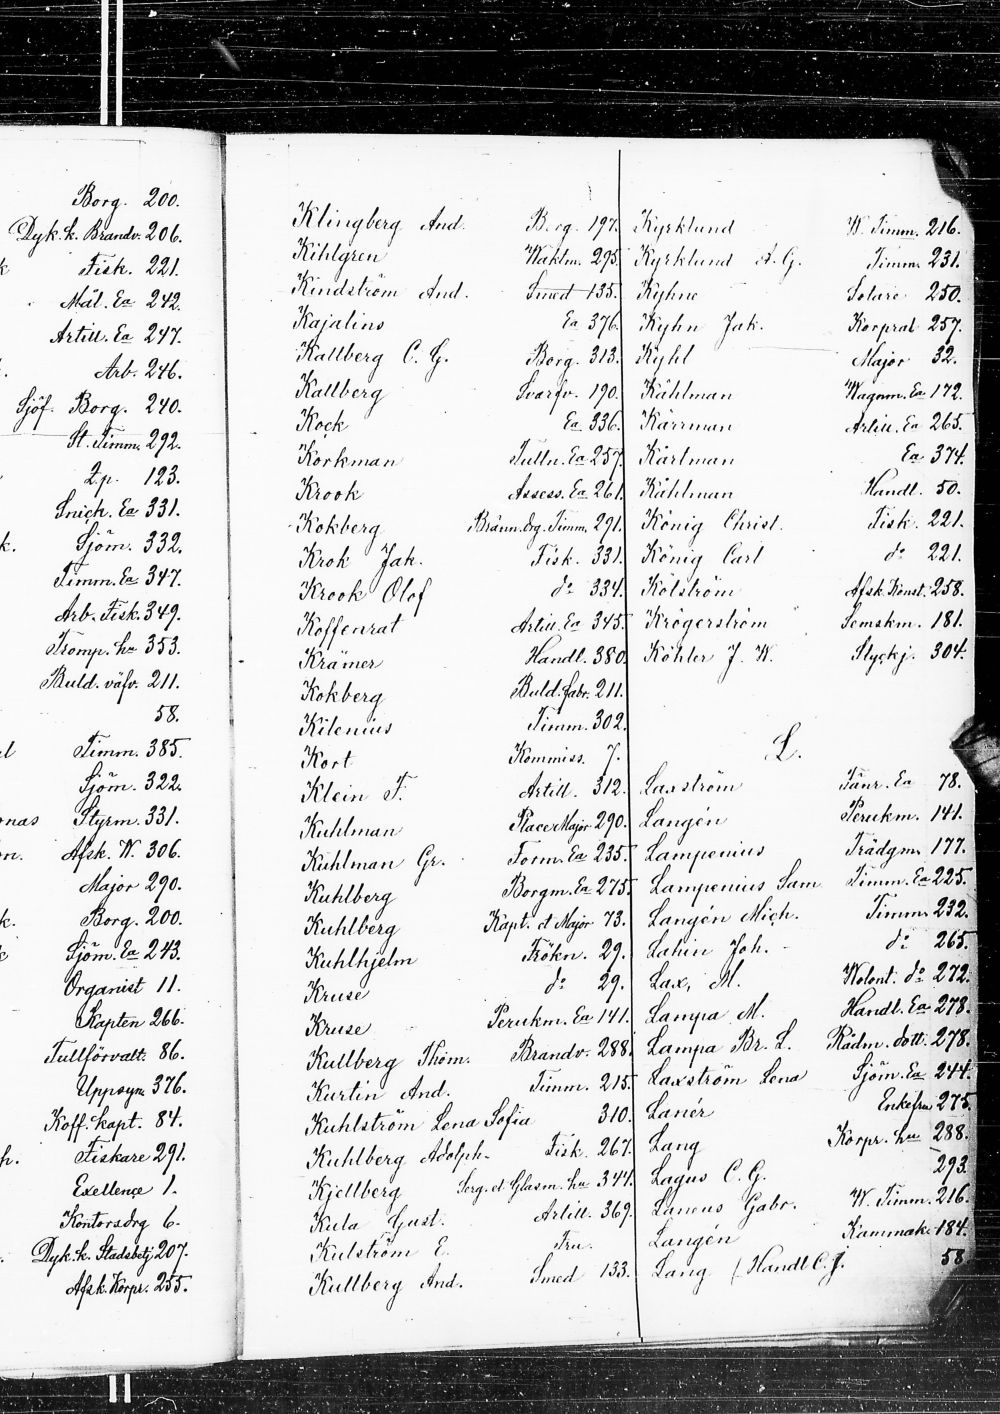 Borg. 200.
Dyk. k. Brandv. 206.
k Fisk. 221.
Mål. Ea 242.
Artill. Ea 247.
Arb. 246.
Sjöf. Borg. 240.
St. Timm. 292.
Z.p. 123.
Snick. Ea 331.
k. Sjöm. 332.
Timm. Ea 347.
Arb. Fisk. 349.
Tromp. hu 353.
Buld. väfv. 211.
58.
Timm. 385.
Sjöm. 322.
onas Styrm. 331.
m. Afsk. W. 306.
Major 290.
k. Borg. 200.
Sjöm. Ea 243.
Organist 11.
Kapten 266.
Tullförvalt. 86.
Uppsyn. 376.
Koff. kapt. 84.
h. Fiskare 291.
Exellence 1.
Kontorsdrg 6.
Dyk. k. Stadsbetj 207.
Afsk. Korpr. 255.
Klingberg And. Borg. 197.
Kihlgren Waktm. 295.
Kindström And. Smed 135.
Kajalins Ea 376.
Kallberg C. G. Borg. 313.
Kallberg Svarfv. 190.
Kock Ea 336.
Korkman Tulln. Ea 257.
Krook Assess. Ea 261.
Kokberg Bränn. drg. Timm. 291.
Krok Jak. Fisk. 331.
Krook Olof do 334.
Koffenrat Artill. Ea 345.
Krämer Handl. 380.
Kokberg Buld. fabr. 211.
Kilenius Timm. 302.
Kort Kommiss. 7.
Klein F. Artill. 312.
Kuhlman Place Major 290.
Kuhlman Gr. Form. Ea 235.
Kuhlberg Borgm. Ea 275.
Kuhlberg Kapt. et Major 73.
Kuhlhjelm Frökn. 29.
Kruse do 29.
Kruse Perukm. Ea 141.
Kullberg Thom. Brandv. 288.
Kurtin And. Timm. 215.
Kuhlström Lena Sofia 310.
Kuhlberg Adolph. Fisk. 267.
Kjellberg Serg. et Glasm. hu 344.
Kula Gust. Artill. 369.
Kulström E. Fru.
Kullberg And. Smed 133.
Kyrklund W. Timm. 216.
Kyrklund A. G. Timm. 231.
Kyhne Solare 250.
Kyhn Jak. Korpral 257.
Kyhl Major 32.
Kählman Wagnm. Ea 172.
Kärrman Artill. Ea 265.
Kärlman Ea 374.
Kählman Handl. 50.
König Christ. Fisk. 221.
König Carl do 221.
Kölström Afsk. Konst. 258.
Krögerström Semskm. 181.
Köhler J. W. Styckj. 304.
L.
Laxström Tänr. Ea 78.
Langén Perukm. 141.
Lampenius Trädgm. 177.
Lampenius Sam Timm. Ea 225.
Langén Mich. Timm. 232.
Lahin Joh. do 265.
Lax, M. Wolont. do 272.
Lampa M. Handl. Ea 278.
Lampa Br. L. Rådm. dott. 278.
Laxström Lena Sjöm. Ea 244.
Lanér Enkefru 275.
Lang Korpr. hu 288.
Lagus C. G. 293.
Laneus Gabr. W. Timm. 216.
Langén Kammak. 184.
Lang (Handl C. J. 58.